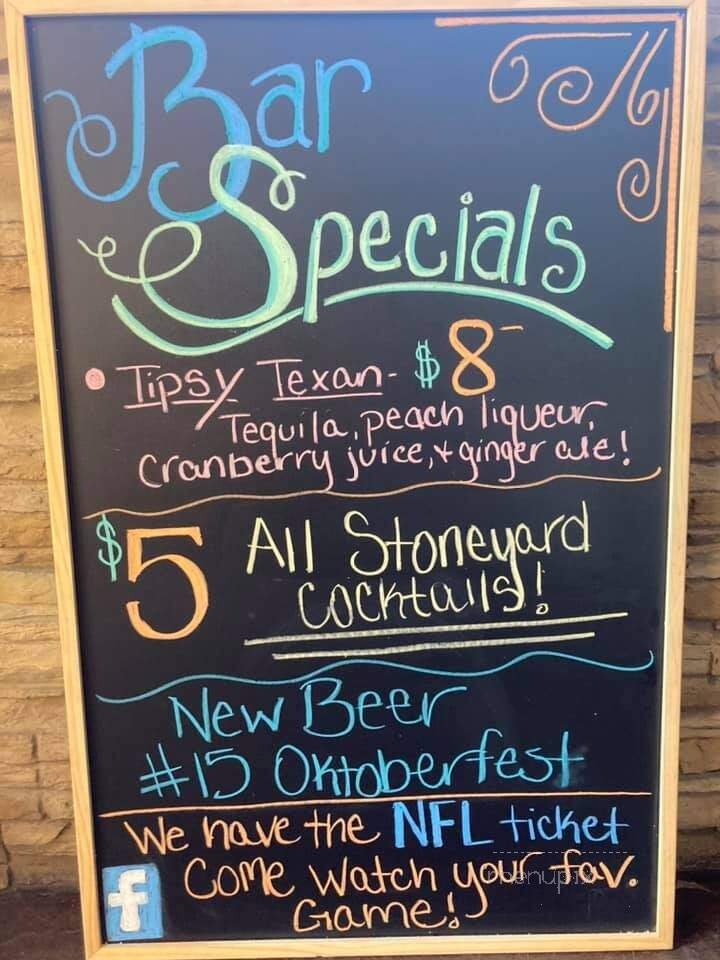 Bar
Specials
• Tipsy Texan- $8-
Tequila, peach liqueur,
Cranberry juice, + ginger ale!
$5 All Stoneyard
Cocktails!
New Beer
#15 Oktoberfest
We have the NFL ticket
Come watch your fav.
Game!
f
menupix